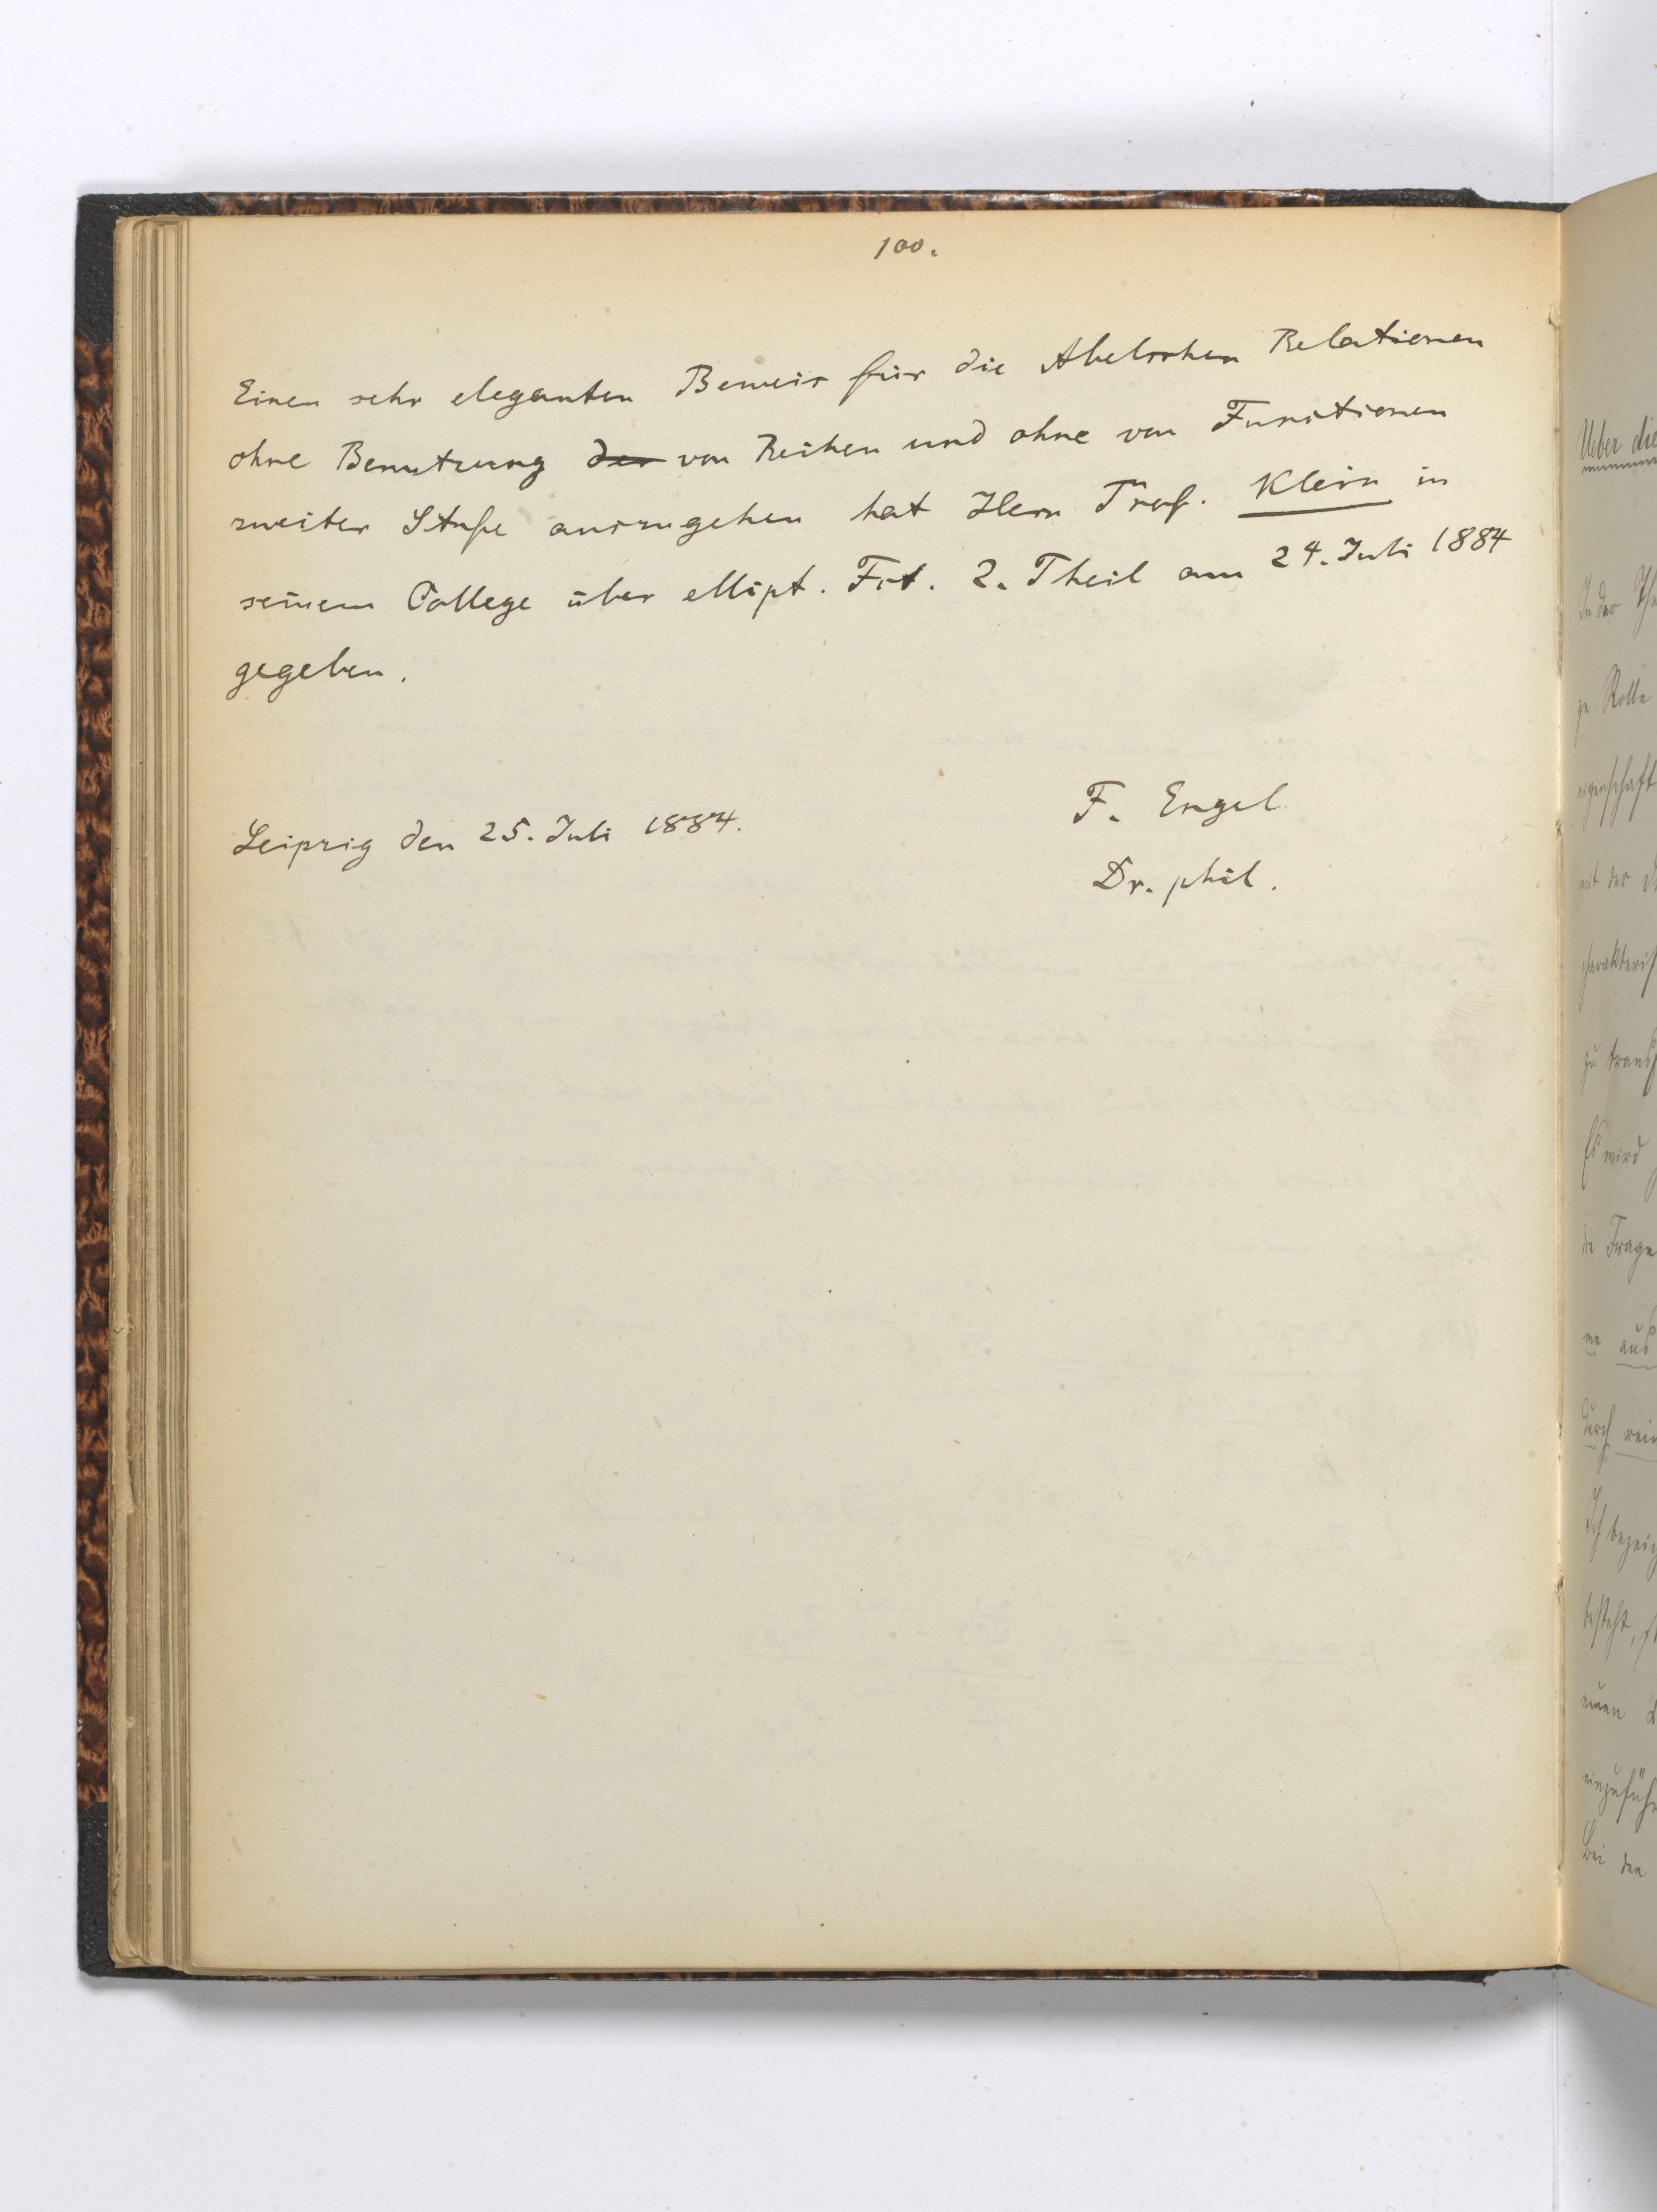 100.
Einen sehr eleganten Beweis für die Abelschen Relationen
ohne Benutzung der von Reihen und ohne von Functionen
zweiter Stufe auszugehen hat Herr Prof. Klein in
seinem College über ellipt. Fct. 2. Theil am 24. Juli 1884
gegeben.
F. Engel
Leipzig den 25. Juli 1884.
Dr. phil.
Ueber die
In der
Rolle
mit der
Es wird
die Frage
aus
durch
besteht,
Bei den